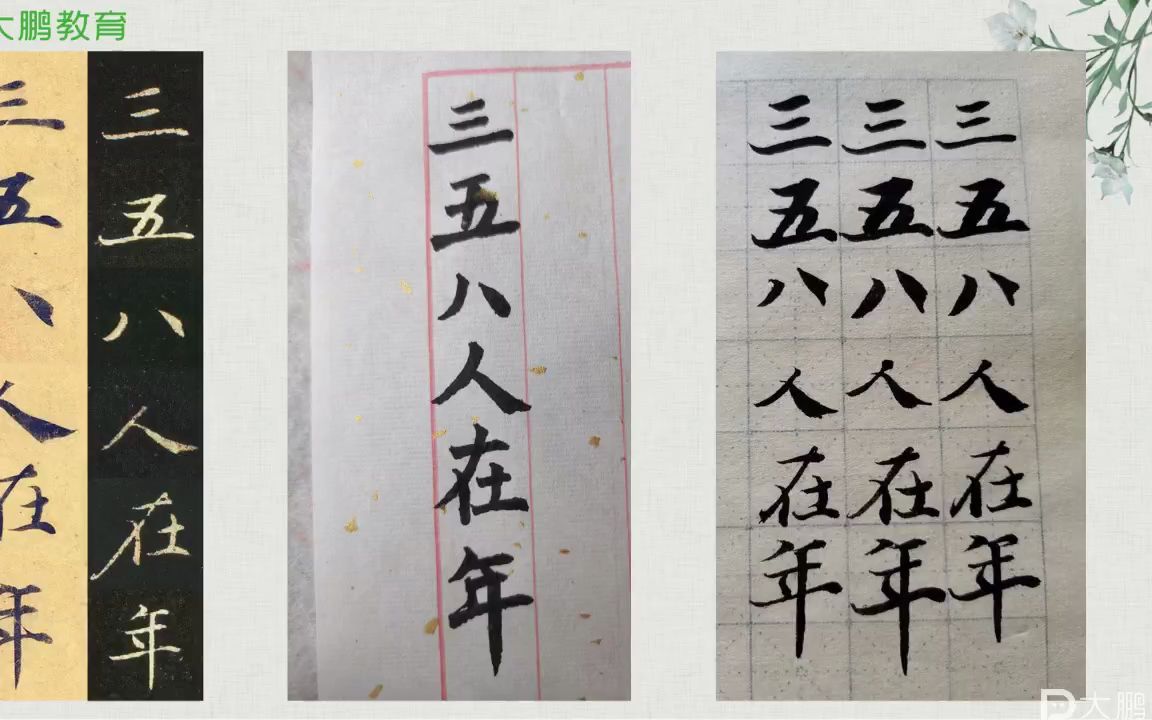 大鹏教育
三 三 三 三 三 三
五 五 五 五 五 五
八 八 八 八 八 八
人 人 人 人 人 人
在 在 在 在 在 在
年 年 年 年 年 年
大鹏